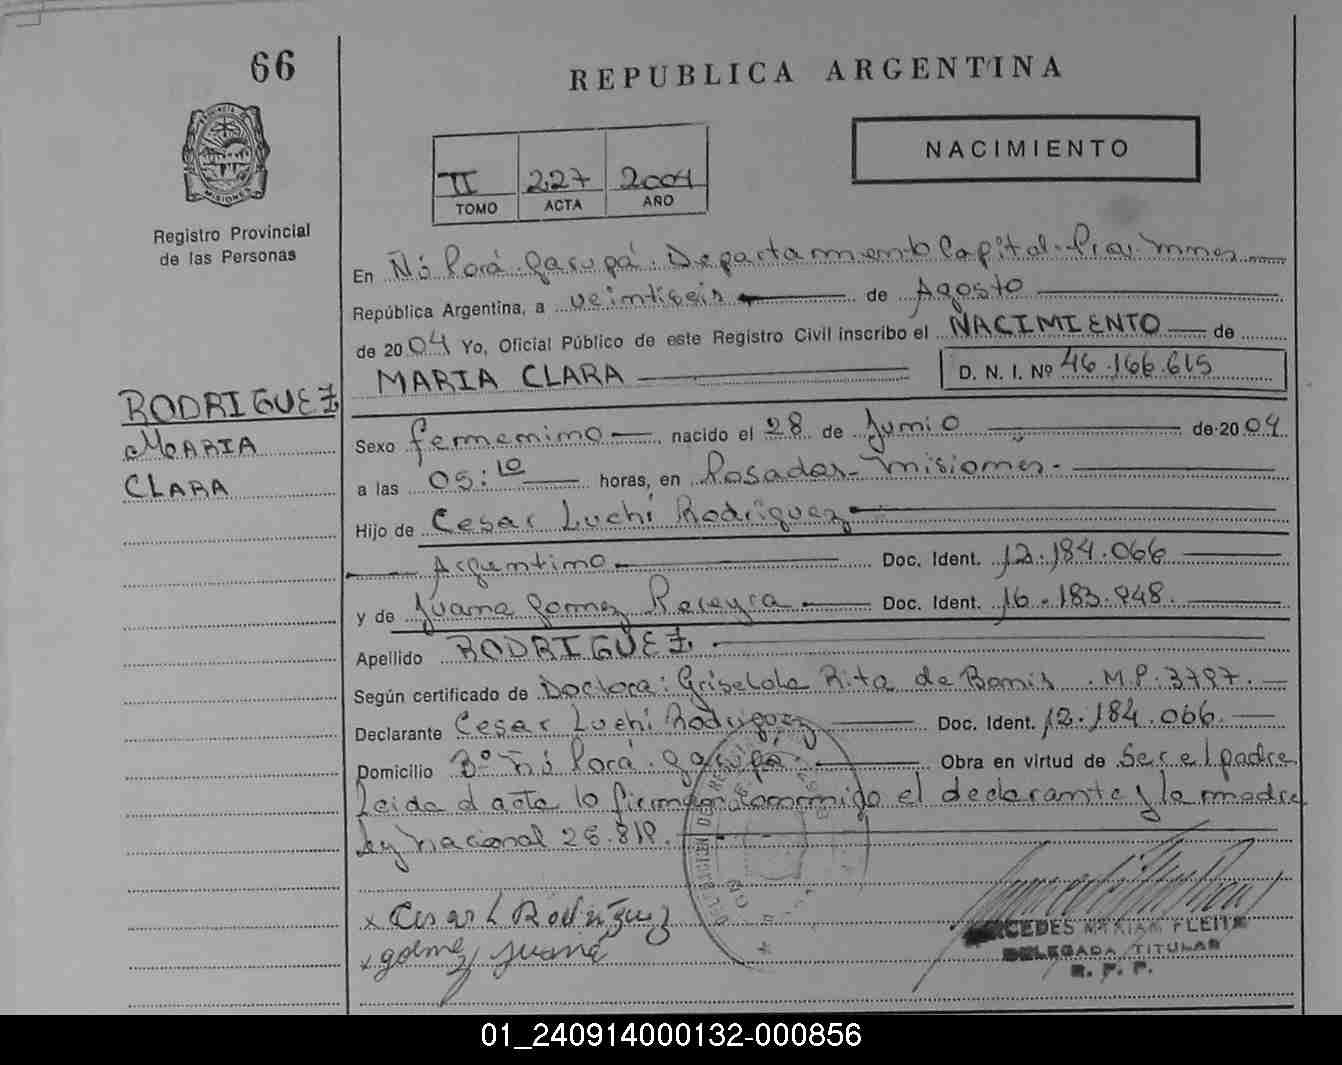 66
REPUBLICA ARGENTINA
NACIMIENTO
II 227 2004
TOMO ACTA AÑO
Registro Provincial
de las Personas
En Ñú Porá. Garupá. Departamento Capital. Pcia. Mnes
República Argentina, a veintiseis de Agosto
de 2004 Yo, Oficial Público de este Registro Civil inscribo el NACIMIENTO de
MARIA CLARA D. N. I. Nº 46.166.615
RODRIGUEZ
MARIA
CLARA
Sexo femenino nacido el 28 de Junio de 2004
a las 05:10 horas, en Posadas - Misiones.
Hijo de Cesar Luchi Rodriguez
Argentino Doc. Ident. 12.184.066
y de Juana Gomez Pereyra Doc. Ident. 16.183.948.
Apellido RODRIGUEZ.
Según certificado de Doctora: Griselda Rita de Bonis. M.P. 3797.
Declarante Cesar Luchi Rodriguez Doc. Ident. 12.184.066.
Domicilio Bº Ñú Porá. Garupá. Obra en virtud de Ser el padre
Leida el acta lo firman conmigo el declarante y la madre
Ley Nacional 25.819.
x Cesar L Rodriguez
x gomez Juana
MERCEDES MYRIAM FLEITA
DELEGADA TITULAR
R. P. P.
01_240914000132-000856